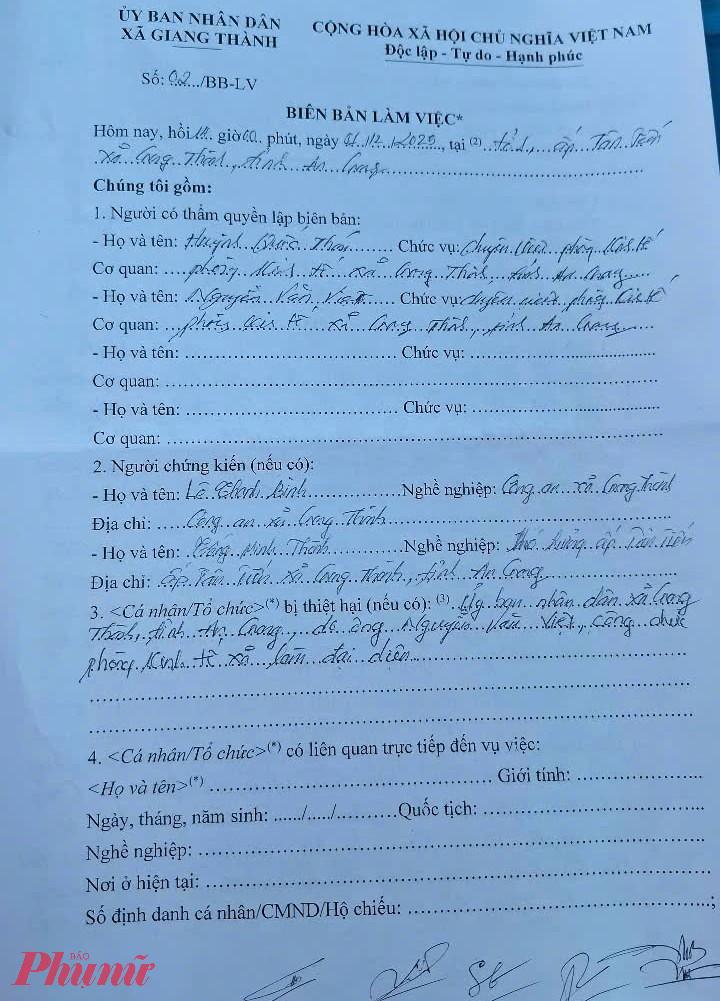 ỦY BAN NHÂN DÂN
XÃ GIANG THÀNH
CỘNG HÒA XÃ HỘI CHỦ NGHĨA VIỆT NAM
Độc lập - Tự do - Hạnh phúc
Số: 02.../BB-LV
BIÊN BẢN LÀM VIỆC*
Hôm nay, hồi giờ 00 phút, ngày 01/12/2025, tại (2) tổ 1, ấp Tân Tiến
xã Giang Thành, tỉnh An Giang
Chúng tôi gồm:
1. Người có thẩm quyền lập biên bản:
- Họ và tên: Huỳnh Quốc Chức vụ: chuyên viên phòng Kinh tế
Cơ quan: phòng Kinh tế xã Giang Thành, tỉnh An Giang
- Họ và tên: Nguyễn Văn Việt Chức vụ: chuyên viên phòng Kinh tế
Cơ quan: phòng Kinh tế, xã Giang Thành, tỉnh An Giang
- Họ và tên: Chức vụ:
Cơ quan:
- Họ và tên: Chức vụ:
Cơ quan:
2. Người chứng kiến (nếu có):
- Họ và tên: Lê Thanh Bình Nghề nghiệp: Công an xã Giang Thành
Địa chỉ: Công an xã Giang Thành
- Họ và tên: Minh Thành Nghề nghiệp: Phó trưởng ấp Tân Tiến
Địa chỉ: ấp Tân Tiến xã Giang Thành, tỉnh An Giang
3. <Cá nhân/Tổ chức>(*) bị thiệt hại (nếu có): (3) Ủy ban nhân dân xã Giang
Thành, tỉnh An Giang, do ông Nguyễn Văn Việt, công chức
phòng Kinh tế xã làm đại diện
4. <Cá nhân/Tổ chức>(*) có liên quan trực tiếp đến vụ việc:
<Họ và tên>(*) Giới tính:
Ngày, tháng, năm sinh: ....../....../.......... Quốc tịch:
Nghề nghiệp:
Nơi ở hiện tại:
Số định danh cá nhân/CMND/Hộ chiếu: ;
BÁO
Phụ nữ